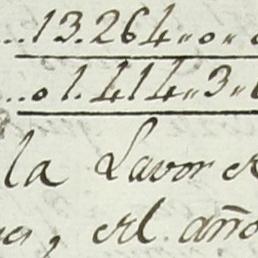 ...13.264"o"o
...o1.414"3"
la Lavor e
, el año